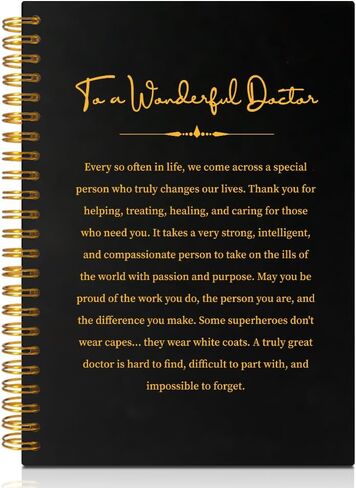 To a Wonderful Doctor
Every so often in life, we come across a special
person who truly changes our lives. Thank you for
helping, treating, healing, and caring for those
who need you. It takes a very strong, intelligent,
and compassionate person to take on the ills of
the world with passion and purpose. May you be
proud of the work you do, the person you are, and
the difference you make. Some superheroes don't
wear capes... they wear white coats. A truly great
doctor is hard to find, difficult to part with, and
impossible to forget.